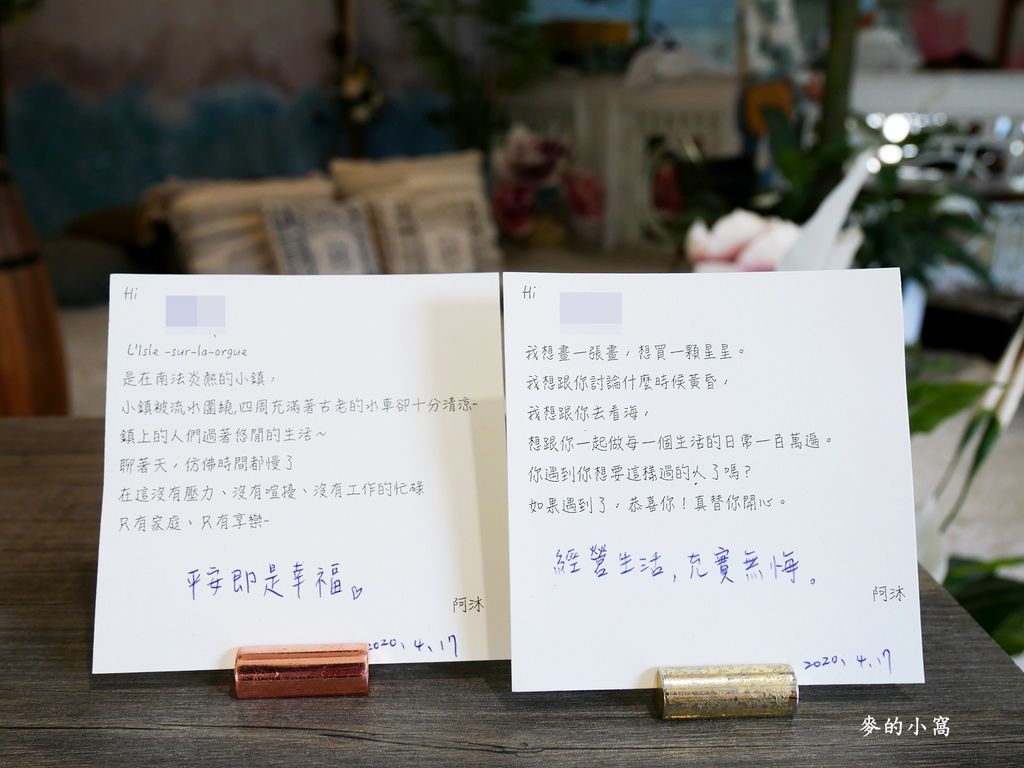 Hi
L'Isle -sur-la-orgue
是在南法炎熱的小鎮，
小鎮被流水圍繞,四周充滿著古老的水車卻十分清涼~
鎮上的人們過著悠閒的生活～
聊著天，仿佛時間都慢了
在這沒有壓力、沒有喧擾、沒有工作的忙碌
只有家庭、只有享樂~
平安即是幸福。
阿沐
2020、4、17
Hi
我想畫一張畫，想買一顆星星。
我想跟你討論什麼時候黃昏，
我想跟你去看海，
想跟你一起做每一個生活的日常一百萬遍。
你遇到你想要這樣過的人了嗎？
如果遇到了，恭喜你！真替你開心。
經營生活，充實無悔。
阿沐
2020、4、17
麥的小窩